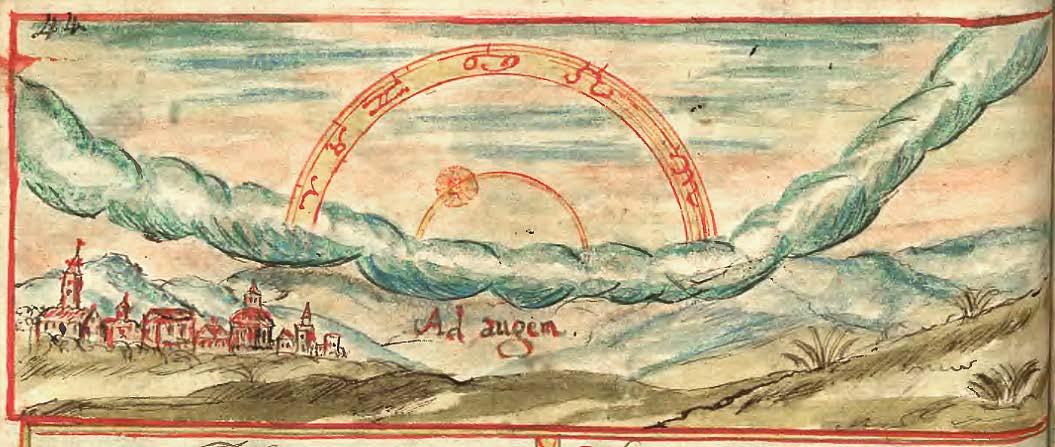 44
♈ ♉ ♊ ♋ ♌ ♍
Ad augem.